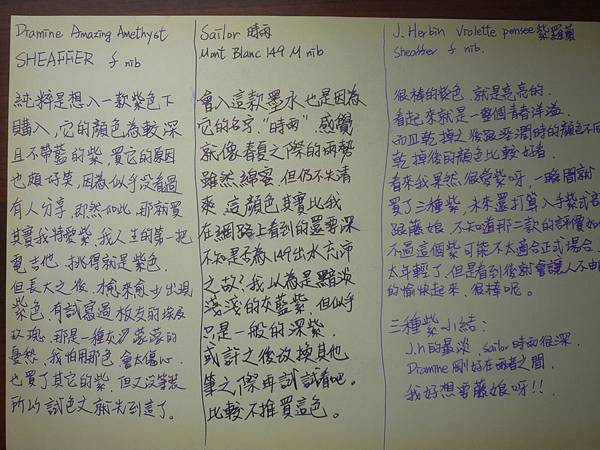 Diamine Amazing Amethyst
SHEAFFER f nib
純粹是想入一款紫色下
購入,它的顏色為較深
且不帶藍的紫,買它的原因
也頗好笑,因為似乎沒看過
有人分享,既然如此,那就買
其實我特愛紫,我人生的第一把
電吉他,挑得就是紫色.
但長大之後,才愈來愈少出現
紫色,有試寫過板友的埃及
玫瑰,那是一種灰灰落落的
憂愁,我怕用那色,會太傷心.
也買了其它的紫,但又沒筆裝
所以試色文就先到這了。
Sailor 時雨
Mont Blanc 149 M nib
會入這款墨水,也是因為
它的名字,"時雨",感覺
就像春夏之際的雨勢
雖然綿密,但仍不失清
爽,這顏色其實比我
在網路上看到的還要深
不知是否為149出水充沛
之故?我以為是黯淡
淺淺的灰藍紫,但似乎
只是一般的深紫.
或許之後改換其他
筆之際再試試看吧。
比較不推買這色。
J. Herbin Violette pensee 紫羅蘭
Sheaffer f nib.
很棒的紫色,就是亮亮的.
看起來就是一整個青春洋溢.
而且乾掉之後跟溼潤時的顏色不同
乾掉後的顏色比較好看.
看來我果然很愛紫呀,一瞬間就
買了三種紫,未來還打算入手紫式部
跟藤娘,不知道那二款的評價如何
不過這個紫可能不太適合正式場合.
太年輕了,但是看到後就會讓人不由
的愉快起來,很棒呢。
三種紫小結:
J.h的最淡,sailor時雨很深.
Diamine剛好在兩者之間.
我好想要藤娘呀!!